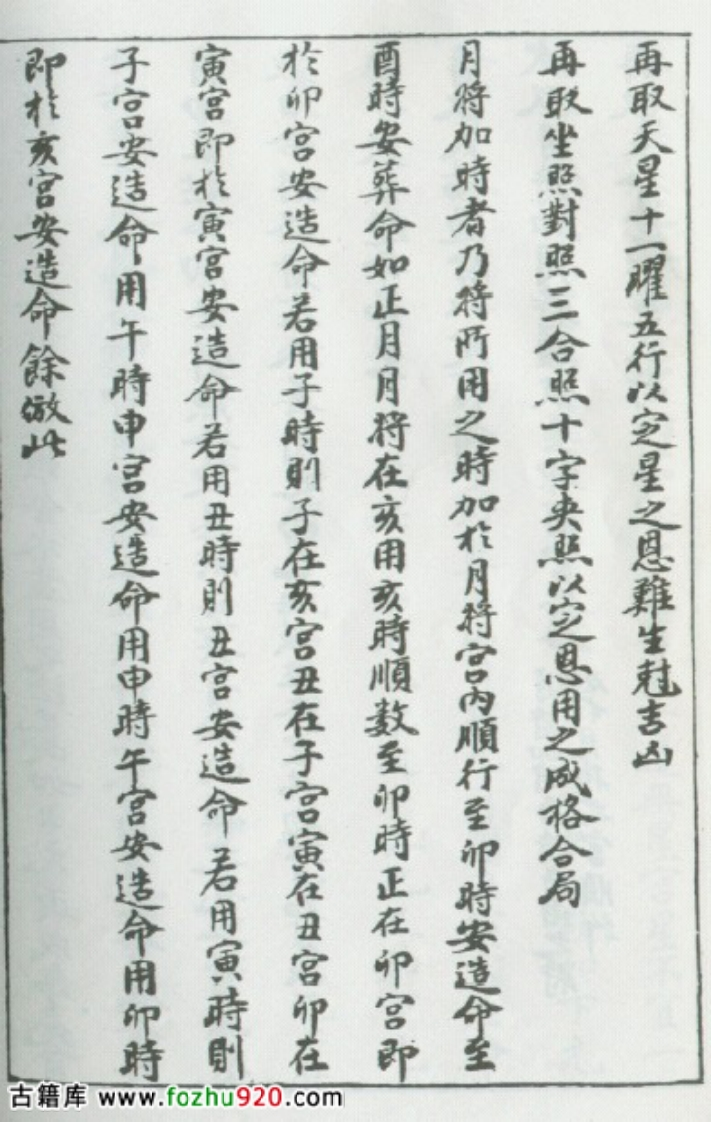 再取天星十一曜五行以定星之恩難生尅吉凶
再取坐照對照三合照十字夾照以定恩用之成格合局
月將加時者乃將所用之時加於月將宮內順行至卯時安造命至
酉時安葬命如正月月將在亥用亥時順数至卯時正在卯宮即
於卯宮安造命若用子時則子在亥宮丑在子宮寅在丑宮卯在
寅宮即於寅宮安造命若用丑時則丑宮安造命若用寅時則
子宮安造命用午時申宮安造命用申時午宮安造命用卯時
即於亥宮安造命餘倣此
古籍库 www.fozhu920.com